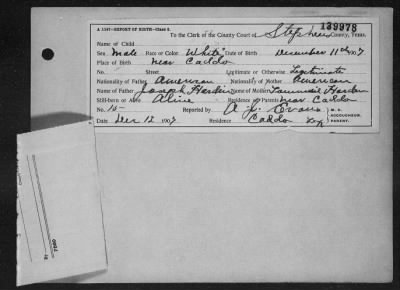 139978
A 1167—REPORT OF BIRTH—Class 2.
To the Clerk of the County Court of Stephens County, Texas.
Name of Child
Sex Male Race or Color White Date of Birth December 11th 1907
Place of Birth near Caddo
No. Street. Legitimate or Otherwise Legitimate
Nationality of Father American Nationality of Mother American
Name of Father Joseph Name of Mother
Still-born or Alive Alive Residence of Parents near Caddo
No. 15 Reported by A. J. Evans M. D. ACCOUCHEUR. PARENT.
Date Dec 12 1907 Residence Caddo Tex